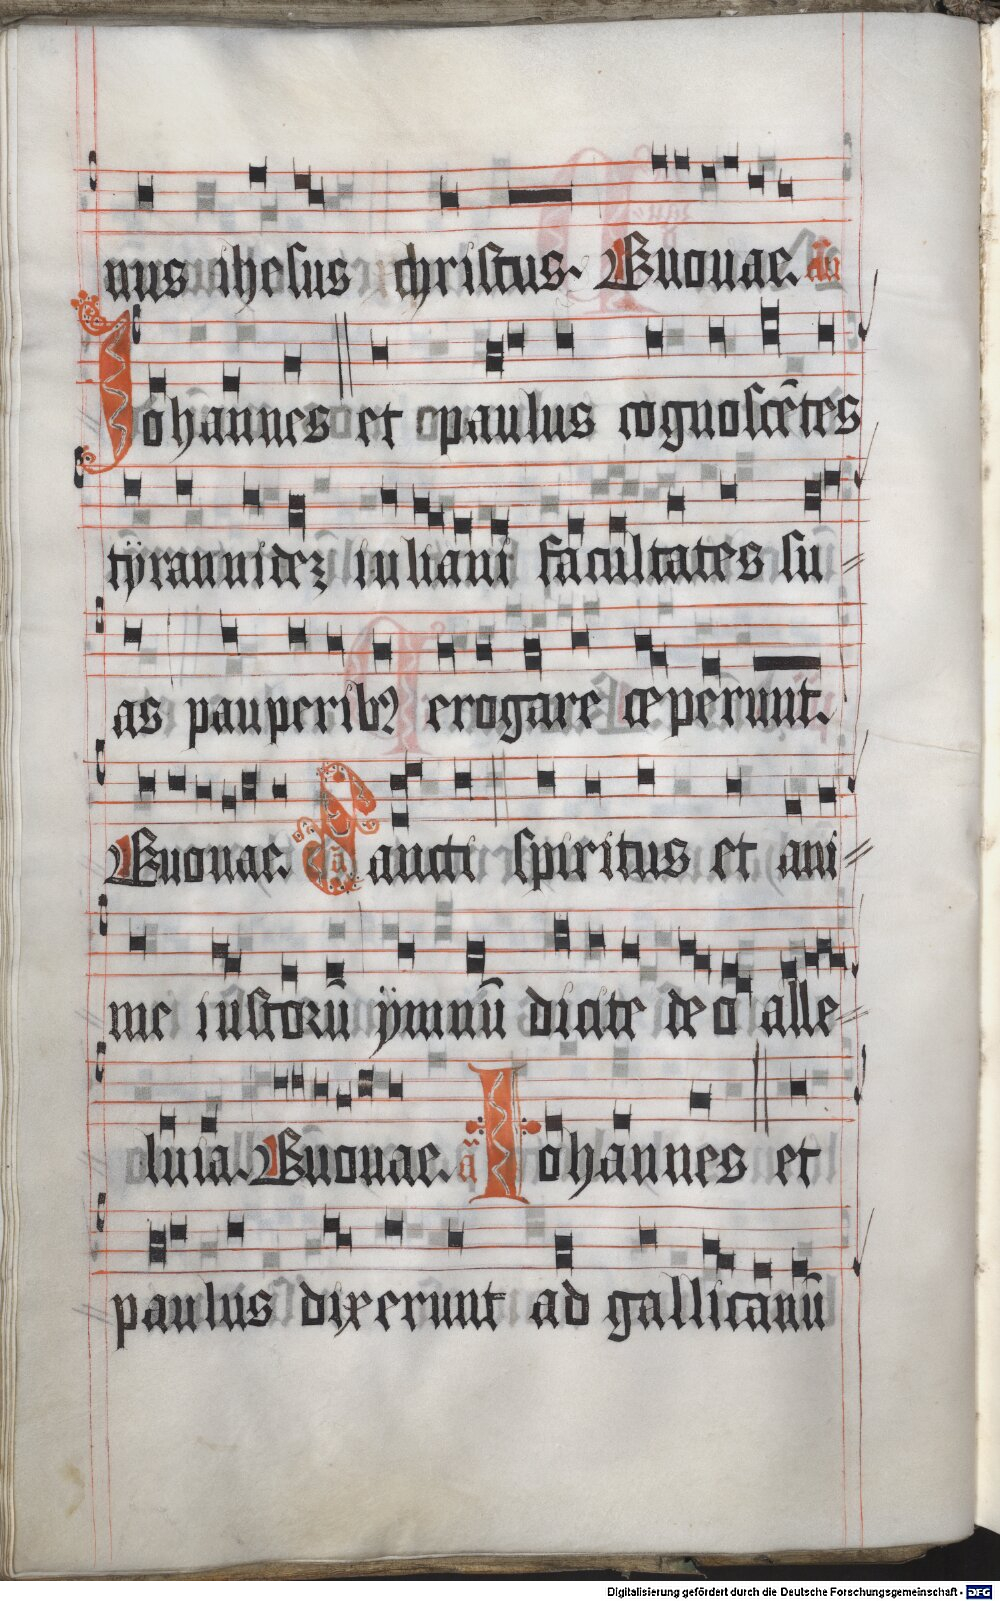 nus ihesus christus. Euouae. an̄
Johannes et paulus cognoscētes
tÿrannidez iuliani facultates su=
as pauperibꝰ erogare ceperunt.
Euouae. a Sancti spiritus et ani=
me iustorū ÿmnū dicite deo alle=
luia. Euouae. ā Iohannes et
paulus dixerunt ad gallicanū
Digitalisierung gefördert durch die Deutsche Forschungsgemeinschaft - DFG